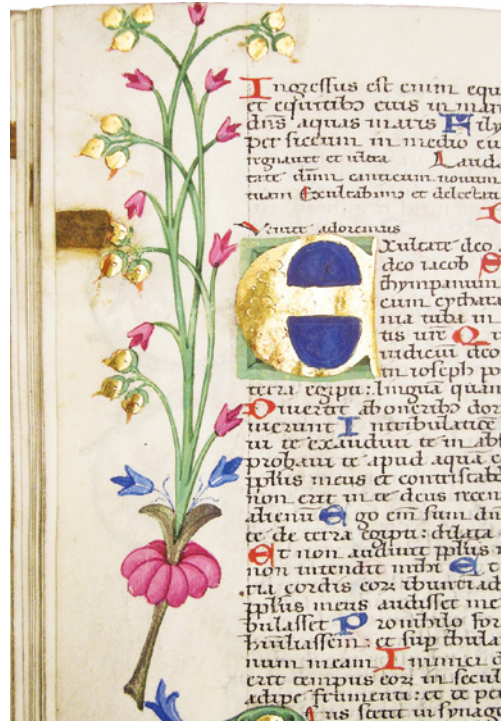 Ingressus est enim equ
et equitibꝫ eius in mar
dn̄s aquas maris Fily
per siccum in medio eiu
regnauit et ultra Lauda
tate dn̄m canticum nouum
tuam Exultabimꝰ et delectati
Venite adoremus
Exultate deo
deo iacob S
thympanum
cum cythara
nia tuba in
tis vr̄e Q
iudiciū deo
in ioseph po
terra egipti: linguā quam
Diuertit ab oneribꝫ dor
uierunt In tribulatiōe
ui te exaudiui te in abs
probaui te apud aquā co
pplūs meus et contestab
non erit in te deus recen
alienū Ego em̄ sum dn̄
te de terra egipti: dilata
Et non audiuit pplūs m
non intendit mihi Et
ria cordis eoꝝ ibunt in ad
pplūs meus audisset me
bulasset Pro nihilo for
humiliassem: et sup tribula
num meam Inimici d
erit tempus eoꝝ in secul
adipe frumenti: et de pe
Deus stetit in synago